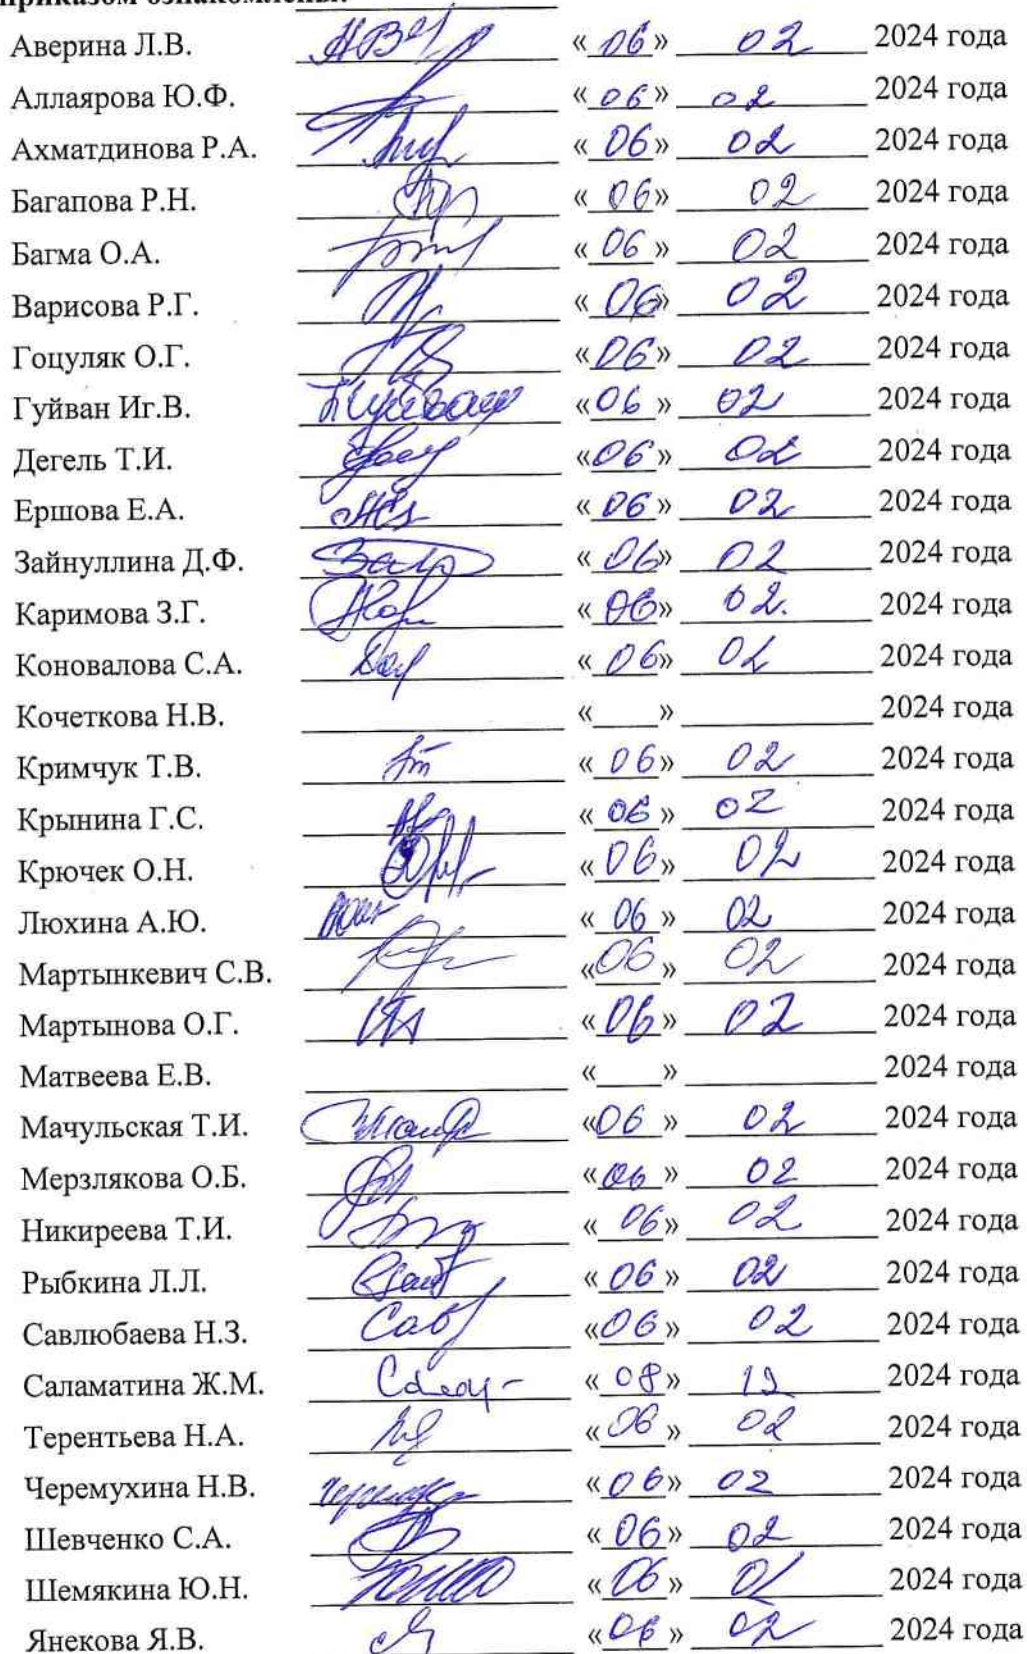 приказом ознакомлены:
Аверина Л.В. «06» 02 2024 года
Аллаярова Ю.Ф. «06» 02 2024 года
Ахматдинова Р.А. «06» 02 2024 года
Багапова Р.Н. «06» 02 2024 года
Багма О.А. «06» 02 2024 года
Варисова Р.Г. «06» 02 2024 года
Гоцуляк О.Г. «06» 02 2024 года
Гуйван Иг.В. «06» 02 2024 года
Дегель Т.И. «06» 02 2024 года
Ершова Е.А. «06» 02 2024 года
Зайнуллина Д.Ф. «06» 02 2024 года
Каримова З.Г. «06» 02. 2024 года
Коновалова С.А. «06» 02 2024 года
Кочеткова Н.В. «___» 2024 года
Кримчук Т.В. «06» 02 2024 года
Крынина Г.С. «06» 02 2024 года
Крючек О.Н. «06» 02 2024 года
Люхина А.Ю. «06» 02 2024 года
Мартынкевич С.В. «06» 02 2024 года
Мартынова О.Г. «06» 02 2024 года
Матвеева Е.В. «___» 2024 года
Мачульская Т.И. «06» 02 2024 года
Мерзлякова О.Б. «06» 02 2024 года
Никиреева Т.И. «06» 02 2024 года
Рыбкина Л.Л. «06» 02 2024 года
Савлюбаева Н.З. «06» 02 2024 года
Саламатина Ж.М. «08» 2024 года
Терентьева Н.А. «06» 02 2024 года
Черемухина Н.В. «06» 02 2024 года
Шевченко С.А. «06» 02 2024 года
Шемякина Ю.Н. «06» 2024 года
Янекова Я.В. «06» 02 2024 года